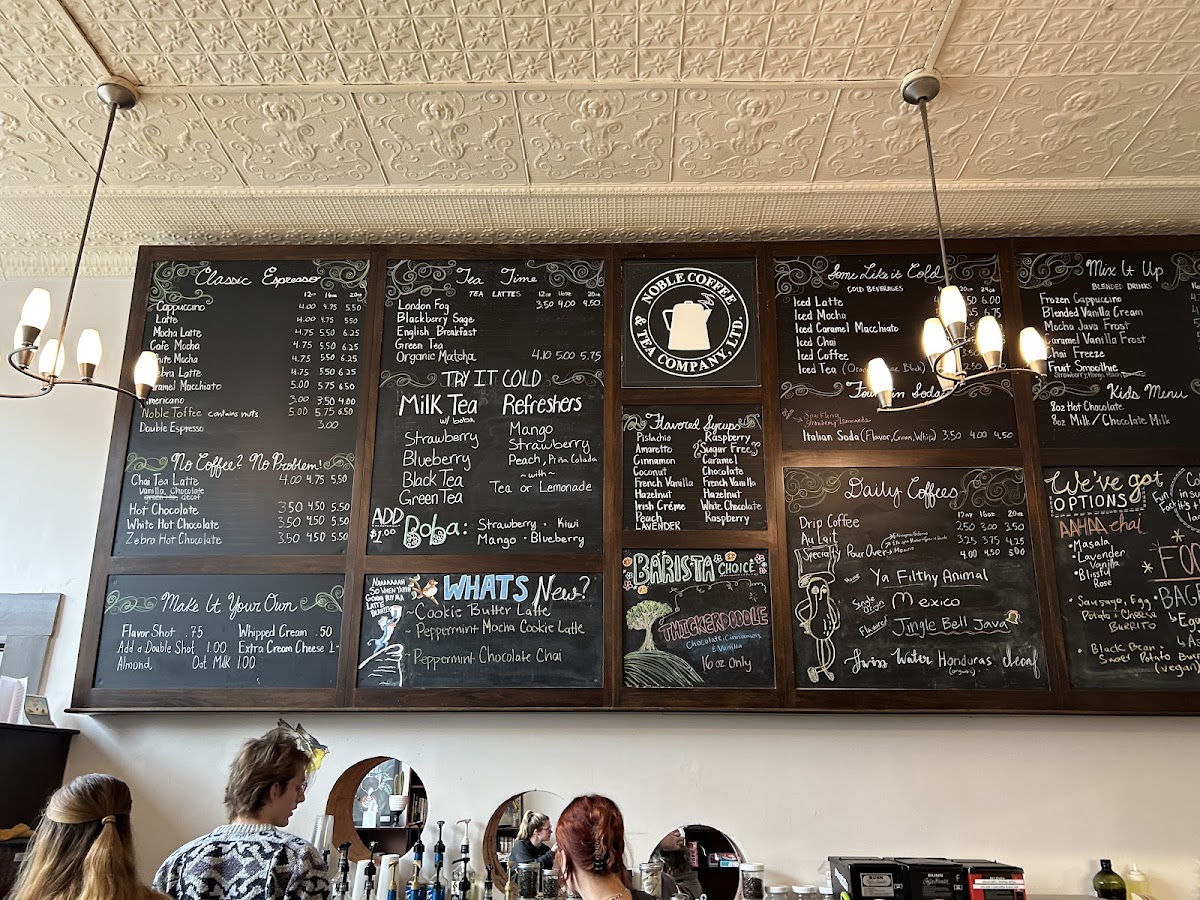 Classic Espresso
12oz 16oz 20oz
Cappuccino 4.00 4.75 5.50
Latte 4.00 4.75 5.50
Mocha Latte 4.75 5.50 6.25
Cafe Mocha 4.75 5.50 6.25
White Mocha 4.75 5.50 6.25
Zebra Latte 4.75 5.50 6.25
Caramel Macchiato 5.00 5.75 6.50
Americano 3.00 3.50 4.00
Noble Toffee contains nuts 5.00 5.75 6.50
Double Espresso 3.00
No Coffee? No Problem!
Chai Tea Latte 4.00 4.75 5.50
Vanilla, Chocolate
Hot Chocolate 3.50 4.50 5.50
White Hot Chocolate 3.50 4.50 5.50
Zebra Hot Chocolate 3.50 4.50 5.50
Make It Your Own
Flavor Shot .75 Whipped Cream .50
Add a Double Shot 1.00 Extra Cream Cheese 1-
Almond, Oat Milk 1.00
Tea Time
TEA LATTES 12oz 16oz 20oz
London Fog 3.50 4.00 4.50
Blackberry Sage
English Breakfast
Green Tea
Organic Matcha 4.10 5.00 5.75
TRY IT COLD
Milk Tea Refreshers
w/ boba
Strawberry
Blueberry
Black Tea
Green Tea
Mango
Strawberry
Peach, Piña Colada
~with~
Tea or Lemonade
ADD
$1.00
Boba: Strawberry · Kiwi
Mango · Blueberry
WHATS New?
- Cookie Butter Latte
- Peppermint Mocha Cookie Latte
- Peppermint Chocolate Chai
NOBLE COFFEE
& TEA COMPANY, LTD.
Flavored Syrups
Pistachio
Amaretto
Cinnamon
Coconut
French Vanilla
Hazelnut
Irish Créme
Peach
LAVENDER
Raspberry
Sugar Free
Caramel
Chocolate
French Vanilla
Hazelnut
White Chocolate
Raspberry
BARISTA CHOICE
THICKERDOODLE
Chocolate, Cinnamon
& Vanilla
16oz Only
Some Like it Cold
COLD BEVERAGES
Iced Latte
Iced Mocha
Iced Caramel Macchiato
Iced Chai
Iced Coffee
Iced Tea
Italian Soda (Flavor, Cream, Whip) 3.50 4.00 4.50
Daily Coffees
12oz 16oz 20oz
Drip Coffee 2.50 3.00 3.50
Au Lait 3.25 3.75 4.25
Specialty Pour Over 4.00 4.50 5.00
House Ya Filthy Animal
Single Origin Mexico
Flavored Jingle Bell Java
Swiss Water Honduras decaf
(organic)
Mix It Up
BLENDED DRINKS
Frozen Cappuccino
Blended Vanilla Cream
Mocha Java Frost
Caramel Vanilla Frost
Chai Freeze
Fruit Smoothie
Kids Menu
8oz Hot Chocolate
8oz Milk/Chocolate Milk
We've got
OPTIONS
• Masala
• Lavender
Vanilla
• Blissful
Rose
• Sausage, Egg
Potato + Cheese
Burrito
• Black Bean +
Sweet Potato
(vegan